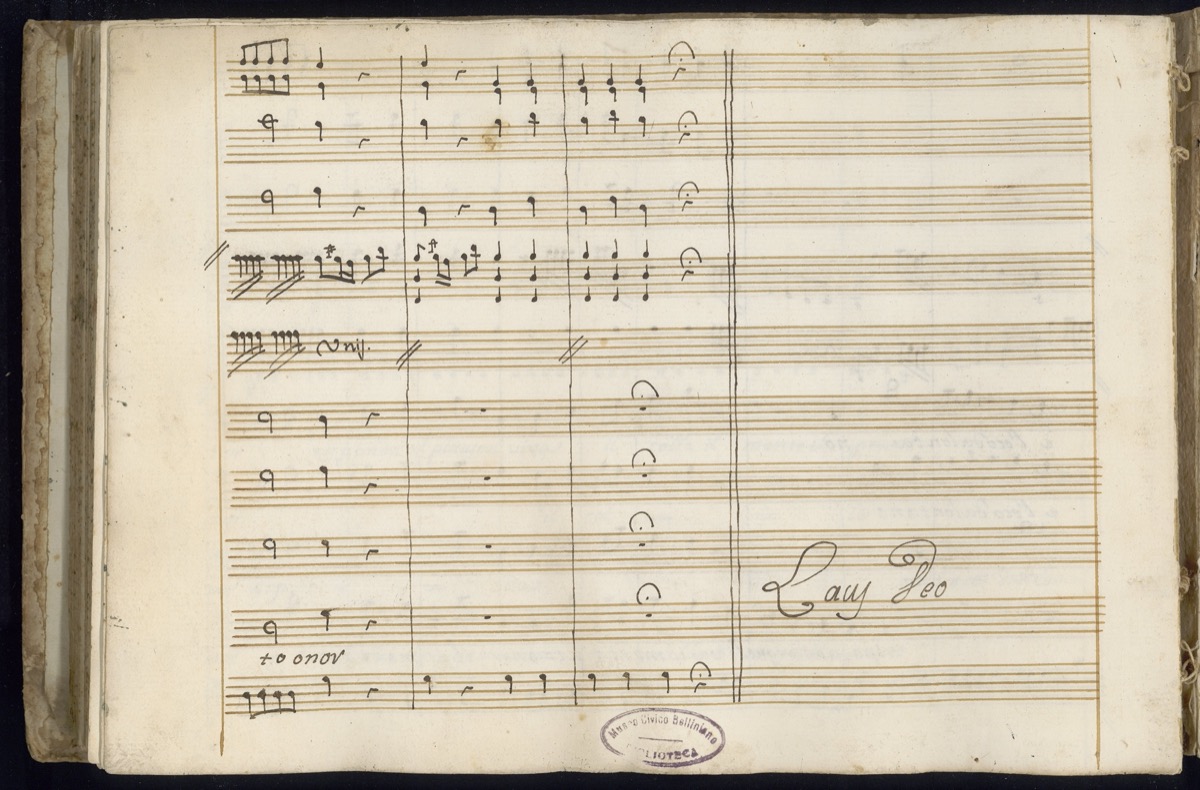 Unis.
Laus Deo
to onor
Museo Civico Belliniano
BIBLIOTECA